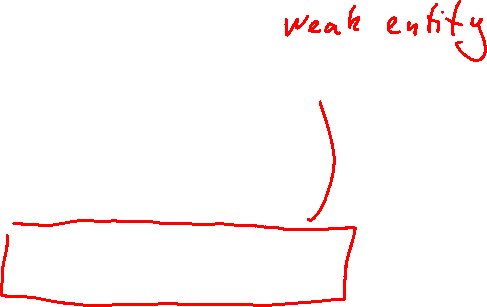 weak entity